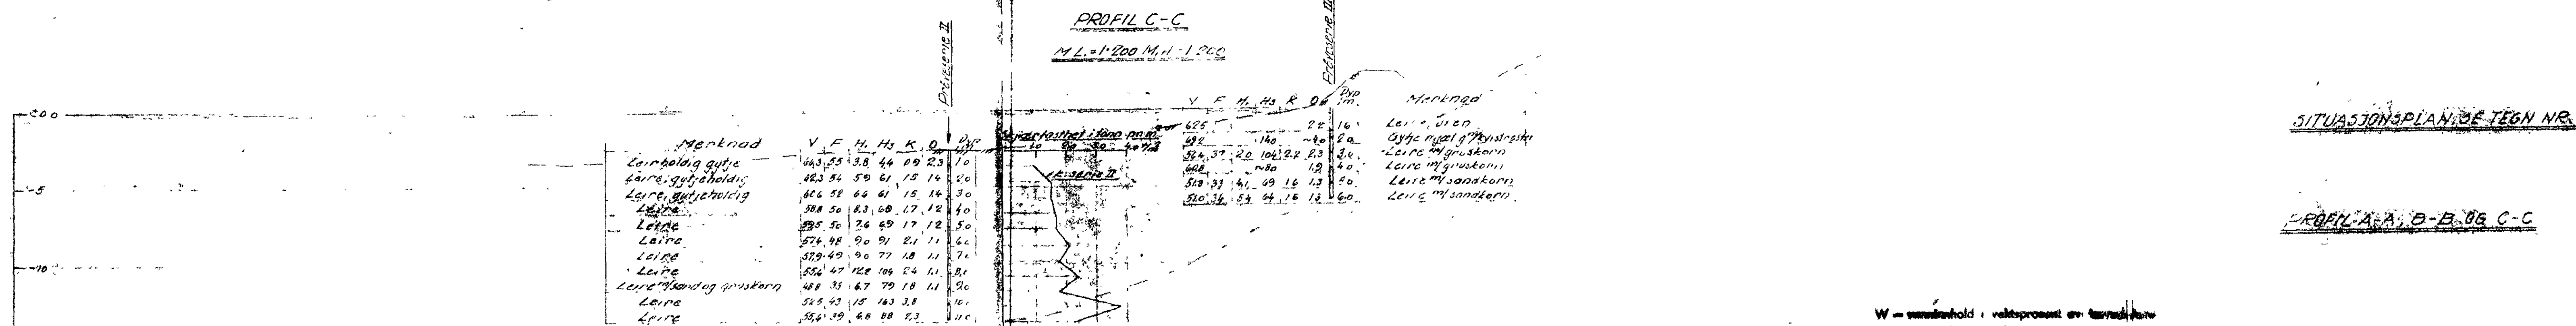 PROFIL C-C
M L.=1:200 M.H.=1:200
Prøveserie II
Prøveserie III
±0.0
-5
-10
Merknad V F H₁ H₃ K O Dyp
Leirholdig gytje 64,3 55 3.8 44 0.9 2.3 1.0
Leire, gytjeholdig 62,3 54 59 61 1.5 1.4 2.0
Leire, gytjeholdig 60.6 52 66 61 1.5 1.4 3.0
Leire 58.8 50 8.3 60 1.7 1.2 4.0
Leire 50 7.6 69 1.7 1.2 5.0
Leire 57,4 48 9.0 91 2.1 1.1 6.0
Leire 57,9 49 9.0 77 1.8 1.1 7.0
Leire 55,6 47 12.2 104 2.4 1.1 8.0
Leire m/sand og gruskorn 48.8 35 6.7 79 1.8 1.1 9.0
Leire 52.5 43 15 163 3.8 10.0
Leire 55,6 39 6.8 88 2,3 11.0
Skjærfasthet i tonn pr. m²
serie II
V F H₁ H₃ K O Dyp i m. Merknad
62.5 2.2 1.6 Leire, uren
69.2 140 ~4.0 2.0 Gytje
52.4 37 2.0 104 2.2 2.3 3.0 Leire m/gruskorn
~80 1.9 4.0 Leire m/gruskorn
51.8 33 4.1 69 1.6 1.3 5.0 Leire m/sandkorn
51.0 34 5.4 64 1.6 1.3 6.0 Leire m/sandkorn
SITUASJONSPLAN, SE TEGN NR.
PROFIL A-A, B-B OG C-C
W = vanninnhold i vektsprosent av